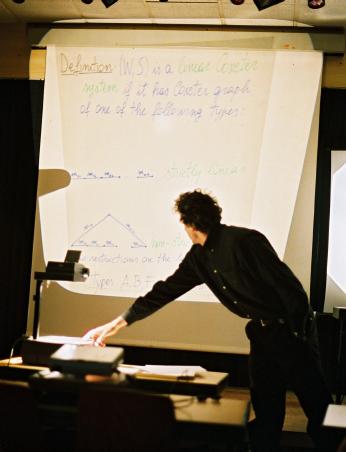 Definition: (W,S) is a linear Coxeter
system if it has Coxeter graph
of one of the following types:
strictly linear
non-
constructions on the
types A.B.F